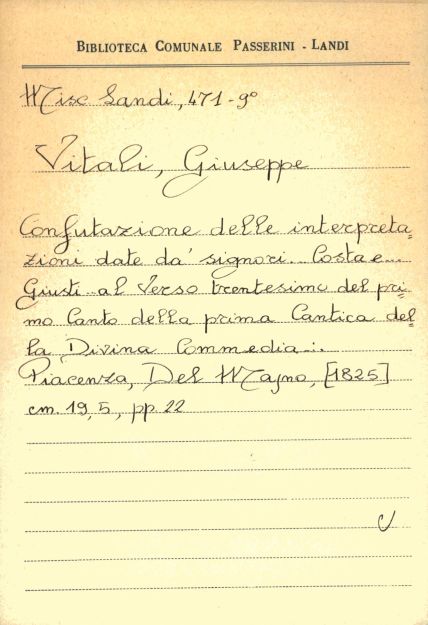 BIBLIOTECA COMUNALE PASSERINI - LANDI
Misc Landi, 471-9°
Vitali, Giuseppe
Confutazione delle interpreta=
zioni date da' signori... Costa e...
Giusti... al Verso trentesimo del pri=
mo Canto della prima Cantica del=
la Divina Commedia...
Piacenza, Del Majno, [1825]
cm. 19,5, pp. 22